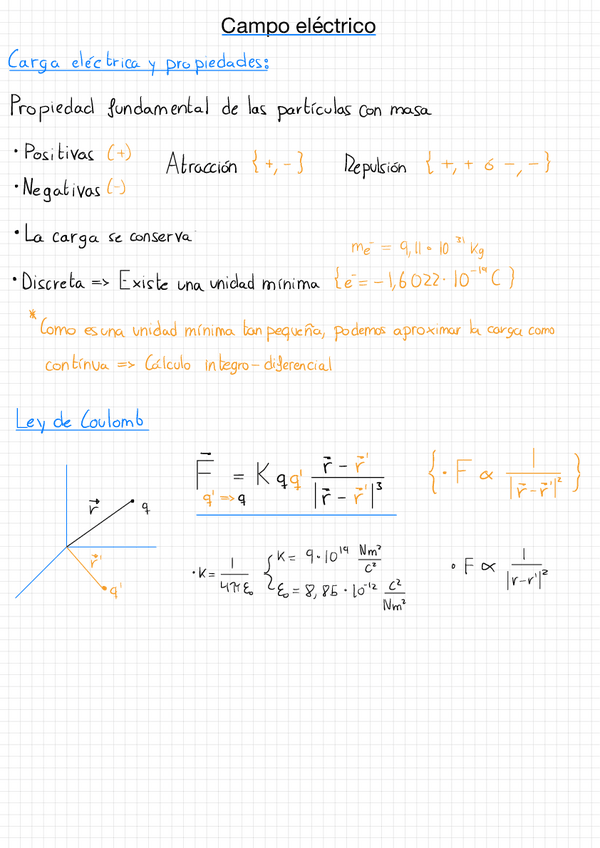 Campo eléctrico
Carga eléctrica y propiedades:
Propiedad fundamental de las partículas con masa
· Positivas (+)
Atracción {+, -}
Repulsión {+, + ó -, -}
· Negativas (-)
· La carga se conserva
me⁻ = 9,11 · 10⁻³¹ Kg
· Discreta => Existe una unidad mínima {e⁻ = -1,6022 · 10⁻¹⁹ C}
* Como es una unidad mínima tan pequeña, podemos aproximar la carga como
contínua => Cálculo integro-diferencial
Ley de Coulomb
r⃗
q
r⃗'
q'
F⃗ q' => q = K q q' (r⃗ - r⃗') / |r⃗ - r⃗'|³
{· F ∝ 1 / |r⃗ - r⃗'|²}
· K = 1 / 4πε₀ { K = 9 · 10¹⁹ Nm² / C²
ε₀ = 8,85 · 10⁻¹² C² / Nm²
∘ F ∝ 1 / |r - r'|²